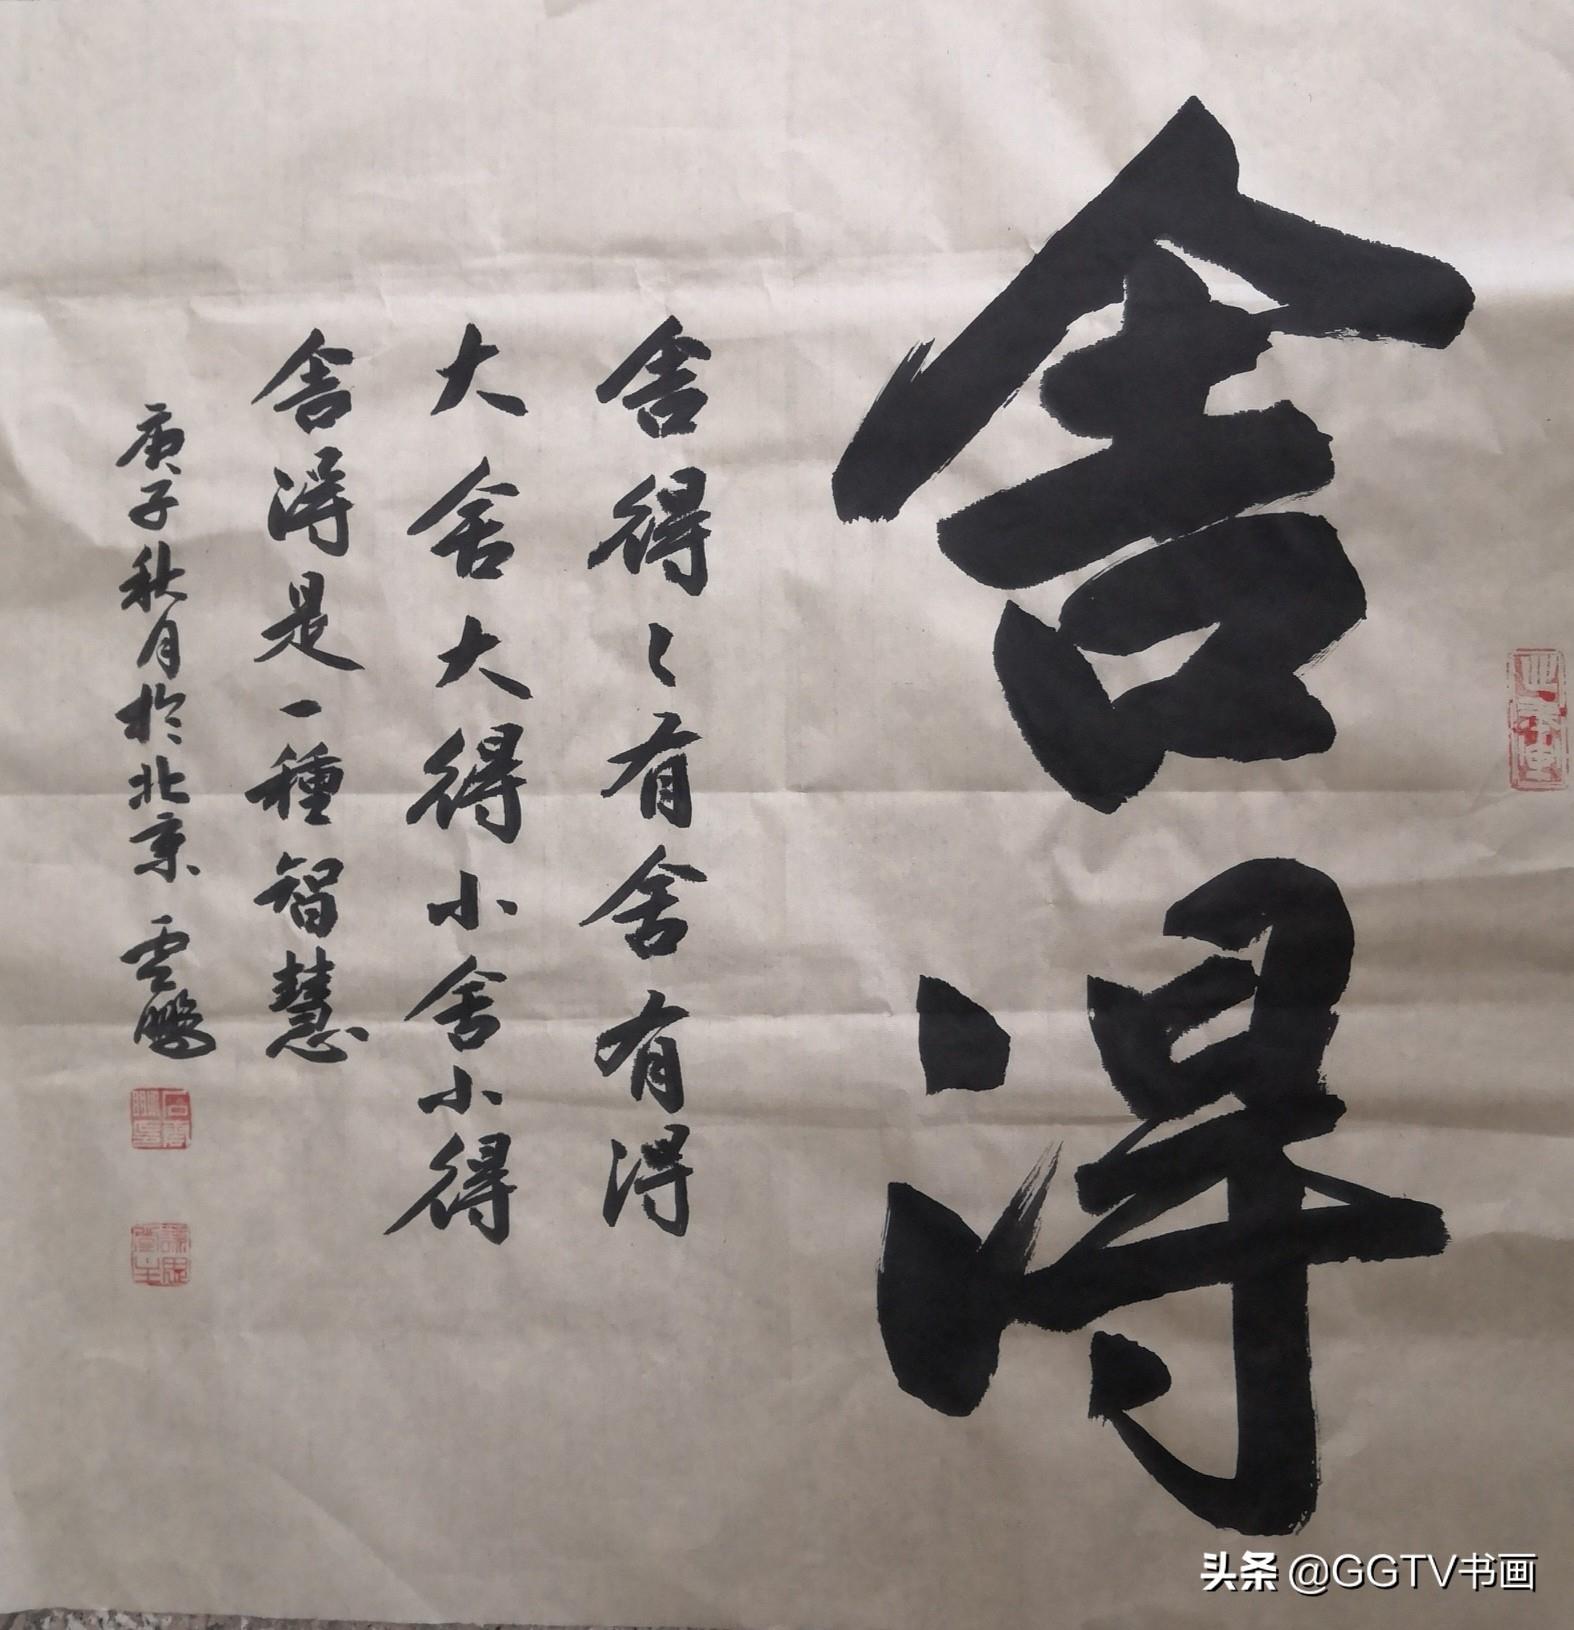 舍得
舍得〻有舍有得
大舍大得小舍小得
舍得是一種智慧
庚子秋月於北京 雲鵬
头条 @GGTV书画